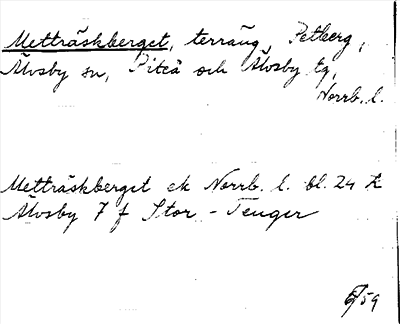 Metträskberget, terräng, Petberg,
Älvsby sn, Piteå och Älvsby tg,
Norrb. l.
Metträskberget ek Norrb. l. bl. 24
Älvsby 7 f Stor-Tenger
59